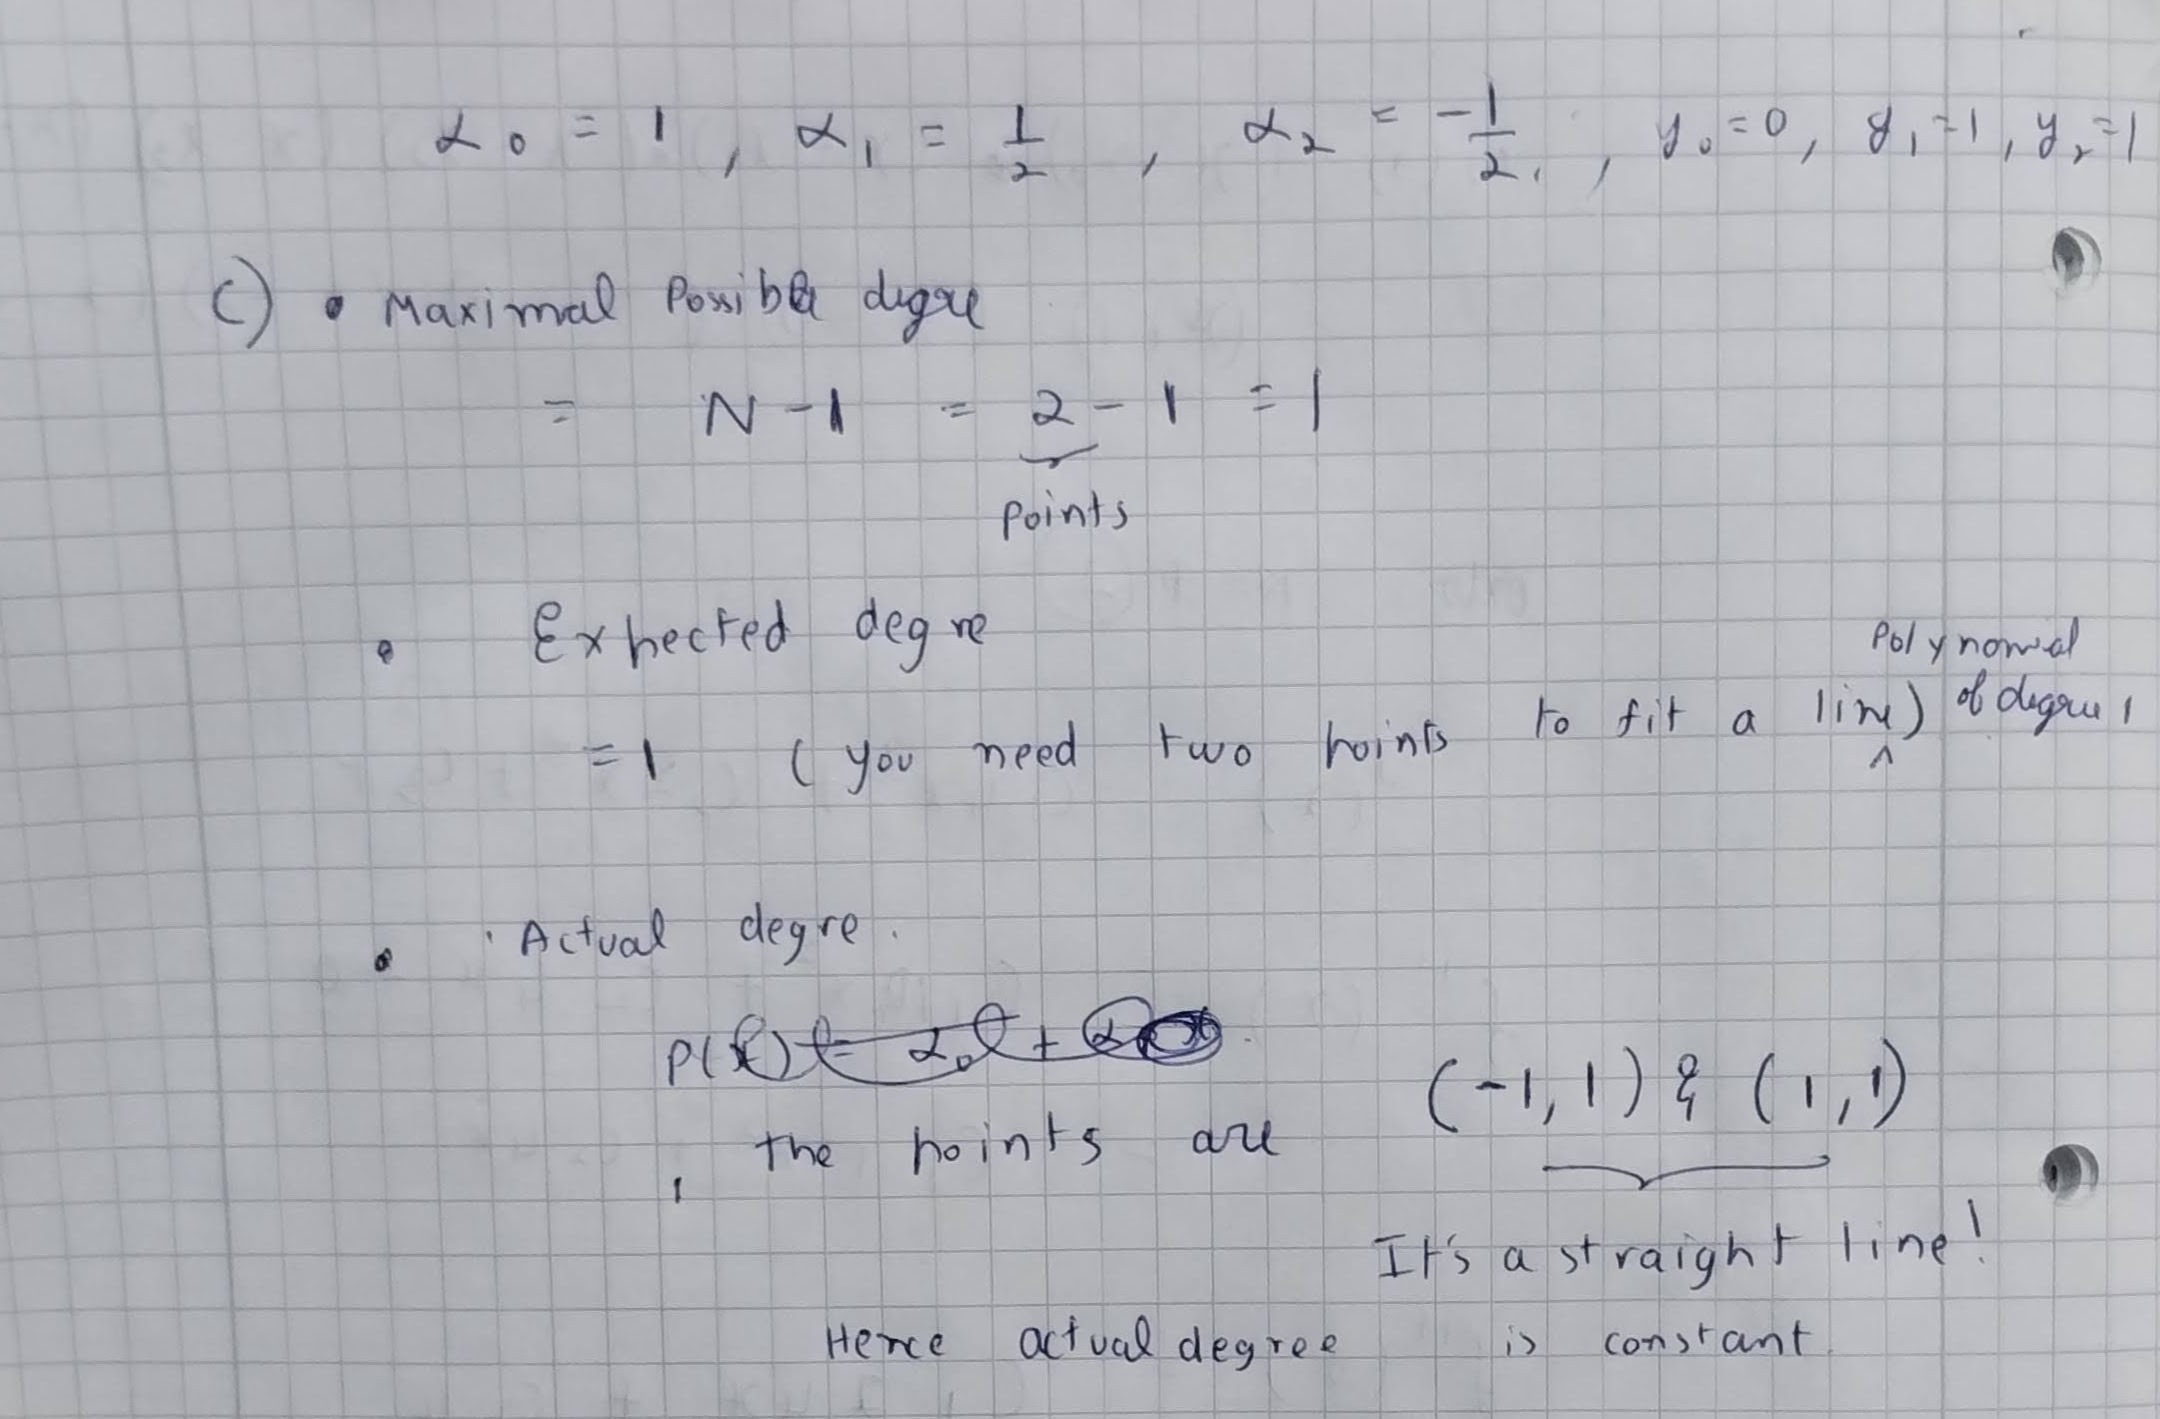 α₀ = 1 , α₁ = 1/2 , α₂ = -1/2 , y₀ = 0, y₁ = 1, y₂ = 1
C) • Maximal Possible degre
= N - 1 = 2 - 1 = 1
points
• Expected degre
= 1 ( you need two points to fit a line) Polynomial of degree 1
• Actual degre.
the points are (-1, 1) & (1, 1)
It's a straight line!
Hence actual degree is constant.